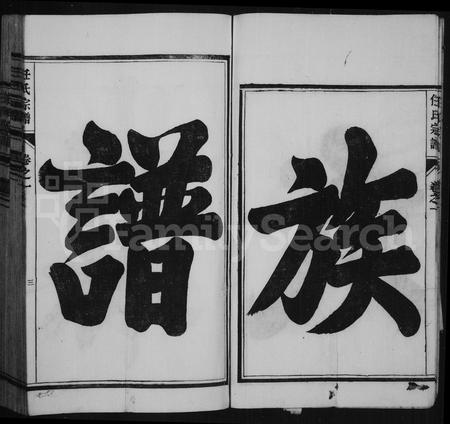 族
譜
任氏宗譜 卷之一
任氏宗譜 卷之一 三
FamilySearch